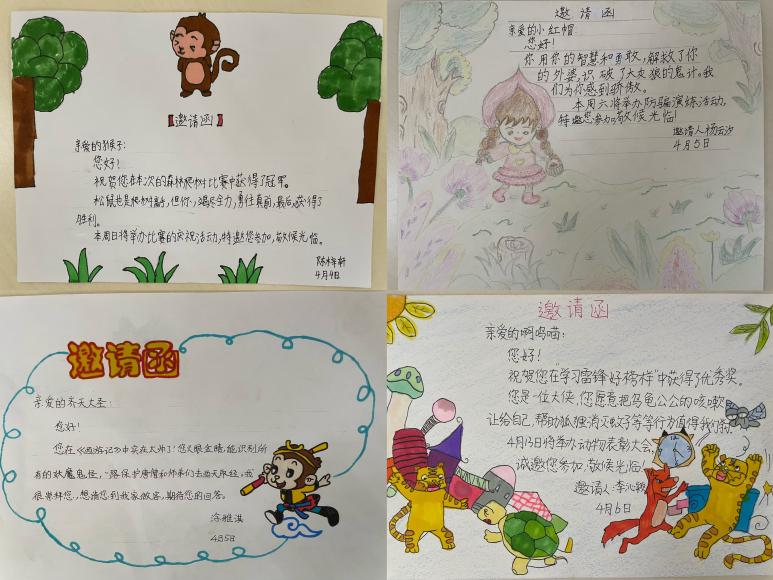 【邀请函】
亲爱的猴子:
您好!
祝贺您在本次的森林爬树比赛中获得了冠军。
松鼠也是爬树高手,但你,竭尽全力,勇往直前,最后,获得了
胜利。
本周日将举办比赛的庆祝活动,特邀您参加,敬候光临。
陈梓轩
4月4日
邀请函
亲爱的小红帽:
您好!
你用你的智慧和勇敢,解救了你
的外婆,识破了大灰狼的鬼计。我
们为你感到骄傲。
本周六将举办防骗演练活动,
特邀您参加,敬候光临!
邀请人杨云汐
4月5日
邀请函
亲爱的齐天大圣:
您好!
您在《西游记》中实在太帅了!您火眼金睛,能识别所
有的妖魔鬼怪,一路保护唐僧和师弟们去西天取经,我
很崇拜您,想请您到我家做客,期待您的回答。
涂雅淇
4月5日
邀请函
亲爱的啊呜喵:
您好!
祝贺您在“学习雷锋好榜样”中获得了优秀奖。
您是一位大侠,您愿意把乌龟公公的咳嗽
让给自己,帮助狐狸消灭蚊子等等行为值得我们
4月13日将举办动物表彰大会,
诚邀您参加,敬候光临!
邀请人:李沁
4月6日